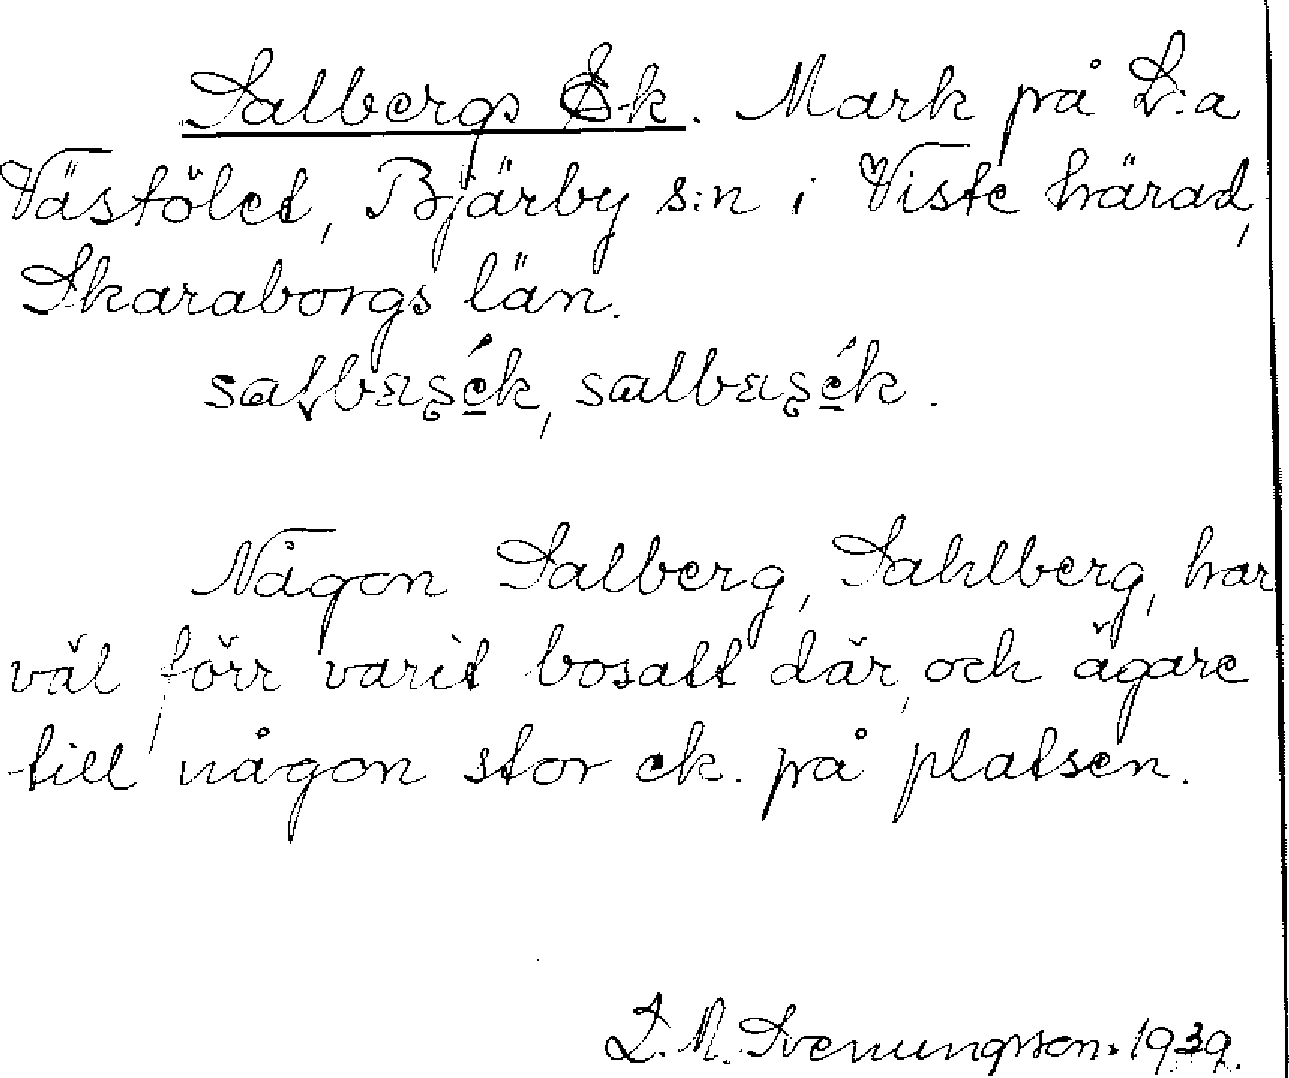 Salbergs Ek. Mark på L:a
Västölet, Bjärby s:n i Viste härad,
Skaraborgs län.
Någon Salberg, Sahlberg, har
väl förr varit bosatt där, och ägare
till någon stor ek. på platsen.
L. M. Svenungsson. 1939.